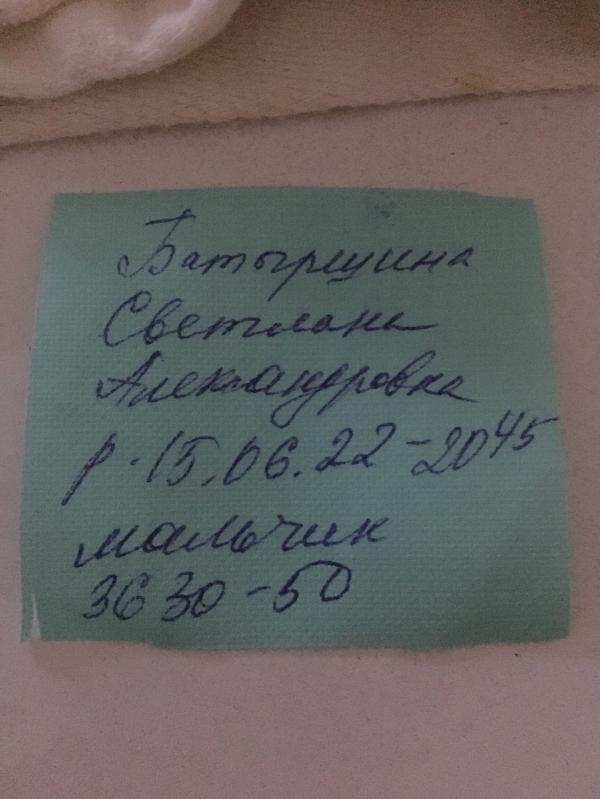 Батырщина
Светлана
Александровна
р-15.06.22-20 45
мальчик
3630-50